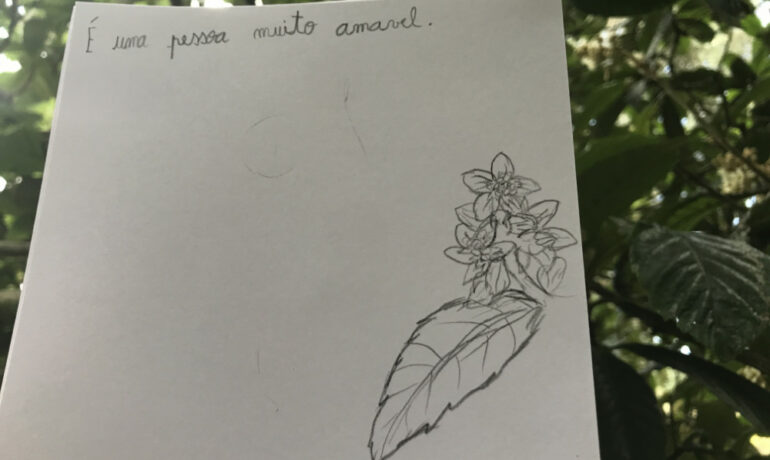 É uma pessoa muito amavel.